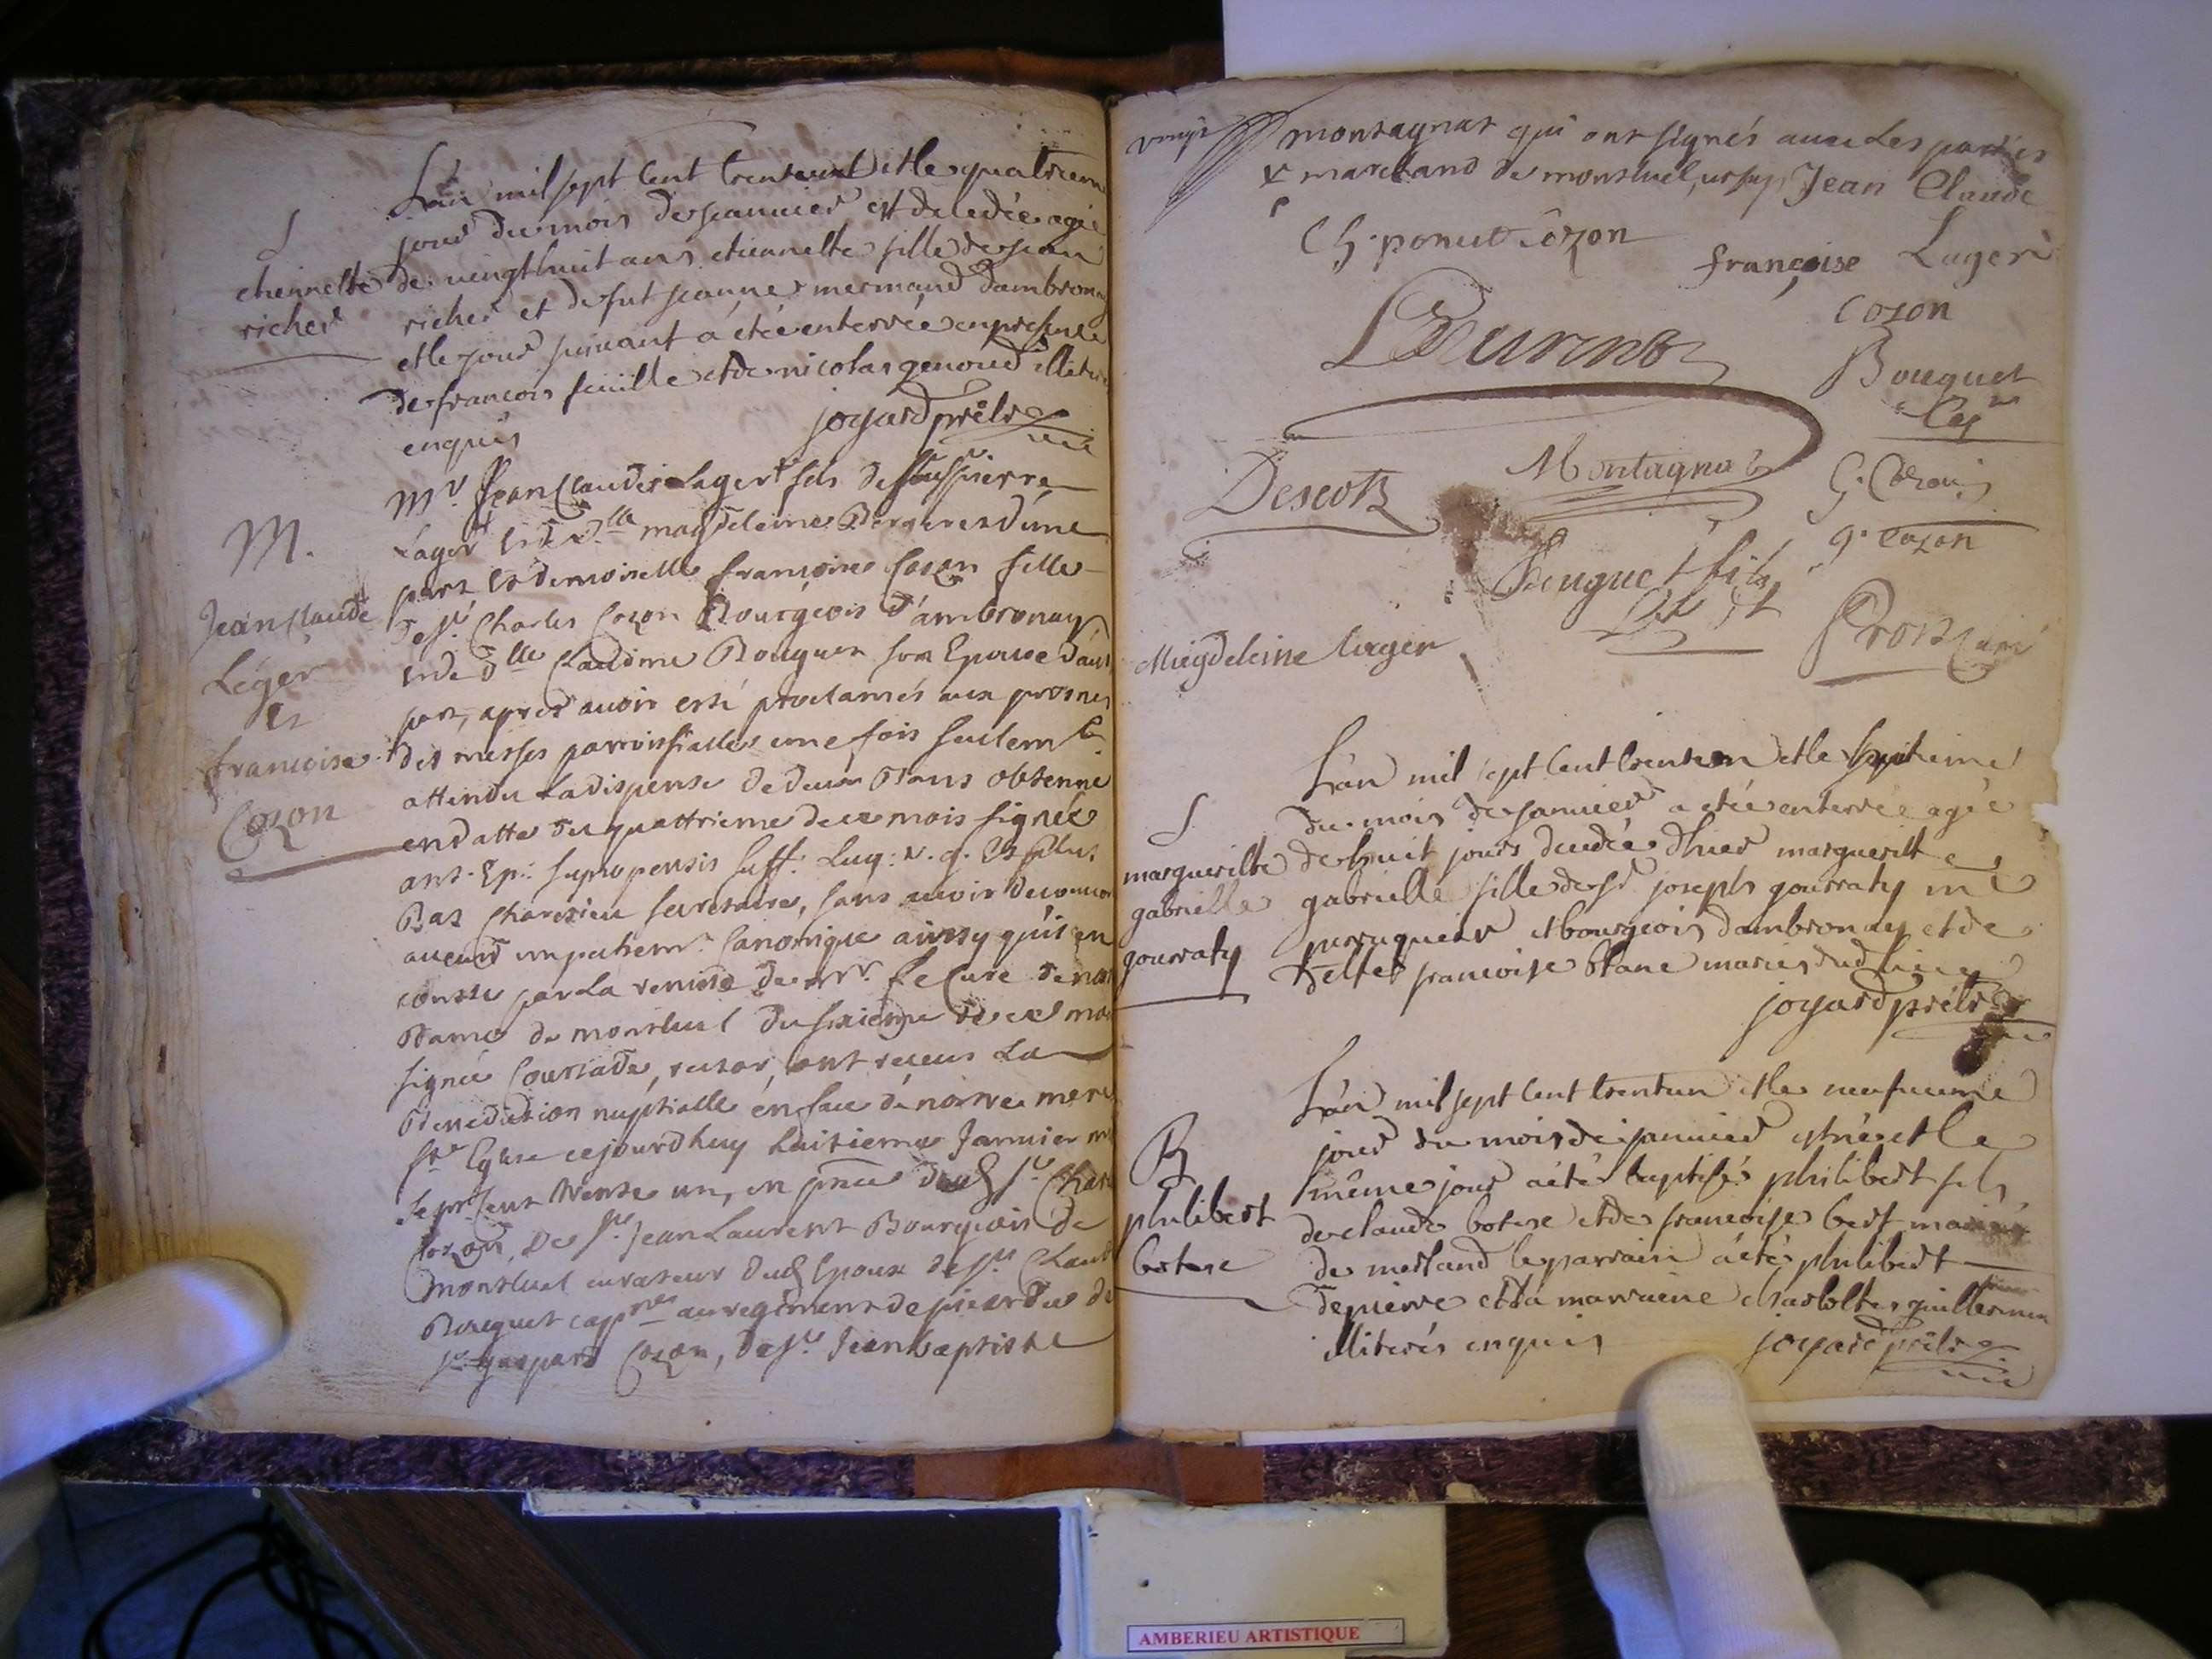 L'an mil sept cent trenteun et le quatriem
jour du mois de jeanvier est decedée agée
S
etiennette
richer
de vingthuit ans etiennette fille de jean
richer et de fut jeanne mermand dambronay
et le jour suivant a étée enterrée en presence
de francois feuille et de nicolas genoud illiteré
enquis
joyard prêtre
M.
Jean Claude
Léger
et
francoise
Cozon
Mr. Jean Claude Lager fils de feu Sr pierre
Lager et de Dlle magdeleine Bergeret d'une
part et demoiselle francoise Cozon fille
de Sr. Charles Cozon Bourgeois d'ambronay
et de Dlle Claudine Bouguet son Epouse d'aut
part, apres avoir esté proclamés aux prosnes
des messes parroissialles une fois seulemt
attendu la dispense de deux bans obtenue
en datte du quattrieme de ce mois signée
ant. Ep. suff. Lug. v. g. et plus
Bas secretaire, sans avoir decouver
aucund empechemt. Canonique ainsy qu'il en
conste par la remise de Mr. le Curé de nos
dame de montluel du sixieme de ce mois
signée ont receus La
Benediction nuptialle en face de nostre mere
Ste Eglise cejourdhuy huitieme Janvier mil
sept cent trente un, en pnce dud Sr Charl
Cozon, de Sr. Jean Laurent Bourgeois de
montluel curateur dud Epoux de Sr. Claud
Bouguet capne au regiment de picardie de
Sr gaspard Cozon, de Sr. Jean baptiste
montagnat qui ont signés avec Les parties
x marchand de montluel, Jean Claude
Lager
Ch. Cozon
françoise
Cozon
Laurent
Bouguet
Cap
Descotz
Montagnat
G. Cozon
g. cozon
Bouguet fils
Magdeleine Lager
L'an mil sept cent trenteun et le septieme
du mois de janvier a étée enterrée agée
S
marguerite
gabrielle
gourraty
de huit jours decedée d'hier marguerite
gabrielle fille de Sr joseph gourraty me
perruquier et bourgeois dambronay et de
delle francoise blanc mariés dud lieu
joyard prêtre
L'an mil sept cent trentun et le neufvieme
jour du mois de janvier est né et le
B
philibert
botese
même jour a été baptisé philibert fils
de claude botese et de francoise berf mariés
de merland le parrain a été philibert
depierre et la marraine charlotte guillermin
illiterés enquis
joyard prêtre
AMBERIEU ARTISTIQUE